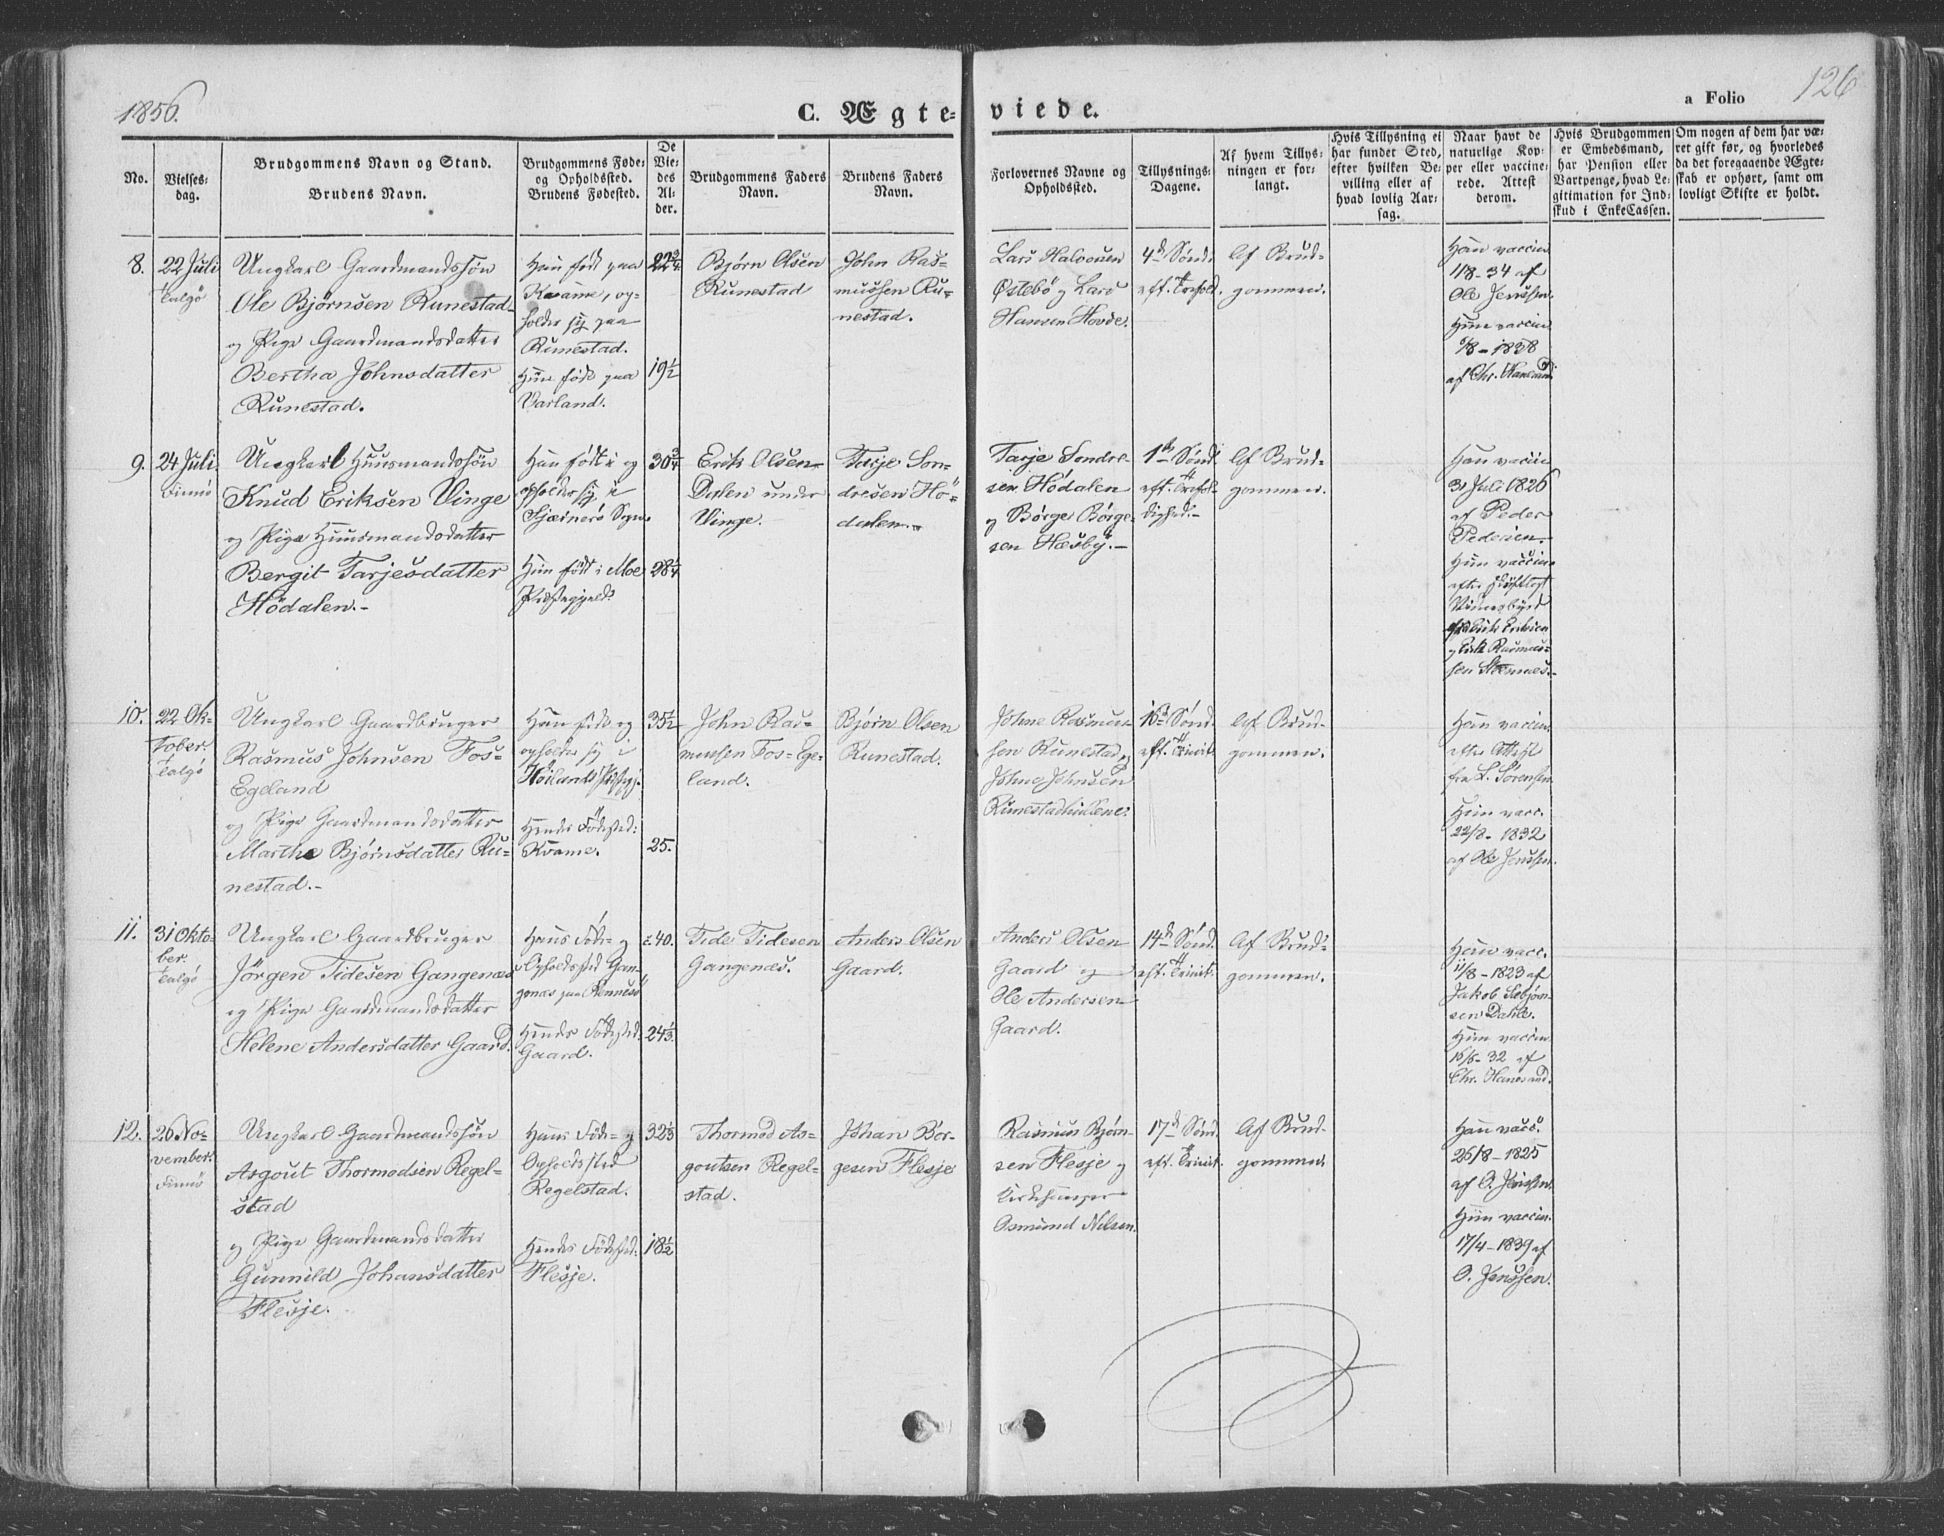 1856.
C. Ægteviede.
a Folio
126
No.
Vielses-
dag.
Brudgommens Navn og Stand.
Brudens Navn.
Brudgommens Føde-
og Opholdssted.
Brudens Fødested.
De
Vie-
des
Al-
der.
Brudgommens Faders
Navn.
Brudens Faders
Navn.
Forlovernes Navne og
Opholdssted.
Tillysnings-
Dagene.
Af hvem Tillys-
ningen er for-
langt.
Hvis Tillysning ei
har fundet Sted,
efter hvilken Be-
villing eller af
hvad lovlig Aar-
sag.
Naar havt de
naturlige Kop-
per eller vaccine-
rede. Attest
derom.
Hvis Brudgommen
er Embedsmand,
har Pension eller
Vartpenge, hvad Le-
gitimation for Ind-
skud i EnkeCassen.
Om nogen af dem har væ-
ret gift før, og hvorledes
da det foregaaende Ægte-
skab er ophørt, samt om
lovligt Skifte er holdt.
8.
22 Juli
Talgö
Ungkarl Gaardmandssøn
Ole Bjørnsen Runestad
og Pige Gaardmandsdatter
Bertha Johnsdatter
Runestad.
Han født paa
Kvame, op-
holder sig paa
Runestad.
Hun født paa
Varland.
22 3/4
19 1/2
Bjørn Olsen
Runestad
John Ras-
mussen Ru-
nestad.
Lars Halvorsen
Østebö og Lars
Hansen Hovde.
4de Sønd.
eft. Trefold.
Af Brud-
gommen.
Han vaccin.
1/8-34 af
Ole Jenssen.
Hun vaccin.
/8-1838
af Chr. Hanesand
9.
24 Juli
Finnö
Ungkarl Huusmandssøn
Knud Eriksen Vinge
og Pige Huusmandsdatter
Bergit Tarjesdatter
Hödalen.-
Han født i og
opholder sig i
Sjærnerö Sogn.
Hun født i Moe
Præstegjeld.
30 3/4
28 1/4
Erik Olsen
Dalen under
Vinge.
Tarje Son-
dresen Hö-
dalen.-
Tarje Sondre-
sen Hödalen
og Börge Börge-
sen Hæsbÿ.-
1ste Sønd.
eft. Trefol-
dighed.-
Af Brud-
gommen.
Han vaccin.
3 Juli 1826
af Peder
Pedersen.
Hun vaccin.
efter skriftligt
Vidnesbyrd
og Erik Rasmus-
sen
10.
22 Ok-
tober.
Talgö
Ungkarl Gaardbruger
Rasmus Johnsen Fos-
Egeland
og Pige Gaardmandsdatter
Martha Bjørnsdatter Ru-
nestad.-
Han født og
opholder sig i
Høilands Præstegj.
Hendes Fødested:
Kvame.
35 1/2
25.
John Ras-
mussen Fos-Ege-
land.
Bjørn Olsen
Runestad.
Johne Rasmus-
sen Runestad og
Johne Johnsen
16de Sønd.
eft. Trinit.
Af Brud-
gommen.
Han vaccin.
efter Attest
fra L. Sørensen
Hun vacc.
22/8-1832
af Ole Jenssen.
11.
31 Okto-
ber.
Talgö
Ungkarl Gaardbruger
Jörgen Tidesen Gangenæs
og Pige Gaardmandsdatter
Helene Andersdatter Gaard.
Hans Føde- og
Opholdssted Gan-
genæs paa Rennesö
Hendes Fødested
Gaard.
c. 40.
24 1/3
Tide Tidesen
Gangenæs.
Anders Olsen
Gaard.
Anders Olsen
Gaard og
Ole Andersen
Gaard.
14de Sønd.
eft. Trinit.
Af Brud-
gommen.
Han vacc.
11/8-1823 af
Jakob Asbjørn-
sen Dahle.
Hun vaccin.
16/6-32 af
Chr. Hanesand.
12.
26 No-
vember.
Finnö
Ungkarl Gaardmandssøn
Asgout Thormodsen Regel-
stad
og Pige Gaardmandsdatter
Gunnild Johansdatter
Flesje.
Hans Føde- og
Opholdssted
Regelstad.
Hendes Fødested.
Flesje.
32 1/3
18 1/2
Thormod As-
goutsen Regel-
stad.
Johan Bør-
gesen Flesje
Rasmus Bjørn-
sen Flesje og
Kirkesanger
Osmund Nilsen.
17de Sønd.
eft. Trinit.
Af Brud-
gommen.
Han vacc.
26/8-1825
af O. Jenssen.
Hun vaccin.
17/4-1839 af
O. Jenssen.